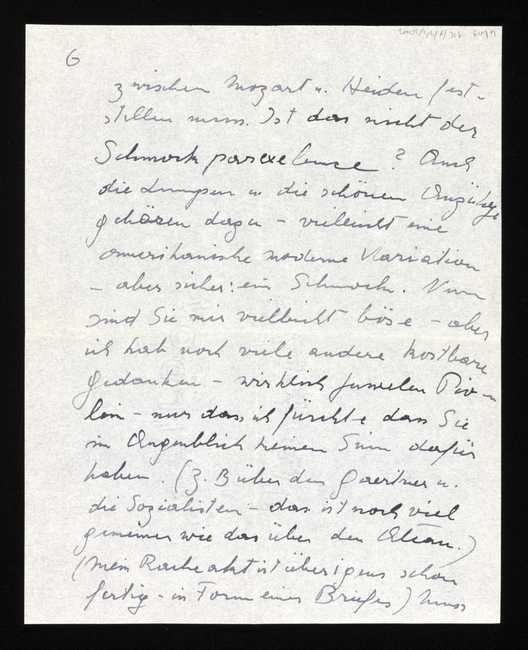 6
zwischen Mozart u. Heiden fest-
stellen muss. Ist das nicht der
Schmock parexelence? Auch
die Lumpen u die schönen Anzüge
gehören dazu - vielleicht eine
amerikanische moderne Variation
- aber sicher: ein Schmock. Nun
sind Sie mir vielleicht böse - aber
ich hab noch viele andere kostbare
Gedanken - wirklich Juwelen
- nur dass ich fürchte dass Sie
im Augenblick keinen Sinn dafür
haben. (Z. B über den Gaertner u.
die Sozialisten - das ist noch viel
gemeiner wie das über den)
(Mein Racheakt ist übrigens schon
fertig - in Form eines Briefes) muss